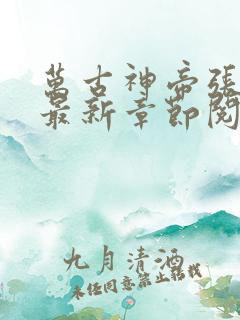 萬古神帝張
最新章節閱
九月清酒
未經同意禁止轉載